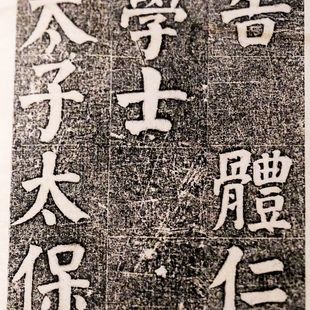 告 體仁
學士
太子太保